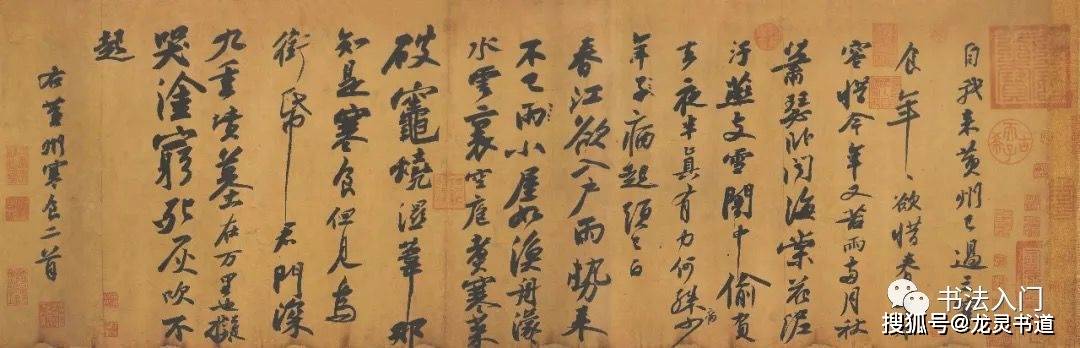 自我來黄州已過
食年〻欲惜春
容惜今年又苦雨兩月秋
蕭瑟卧聞海棠花泥
汙燕支雪闇中偷負
去夜半真有力何殊少
病
年子病起頭已白
春江欲入户雨勢來
不已雨小屋如漁舟濛
水雲裏空庖煮寒菜
破竈燒濕葦那
知是寒食但見烏
銜帋君門深
九重墳墓在万里也擬
哭塗窮死灰吹不
起
右黄州寒食二首
书法入门
搜狐号@龙灵书道